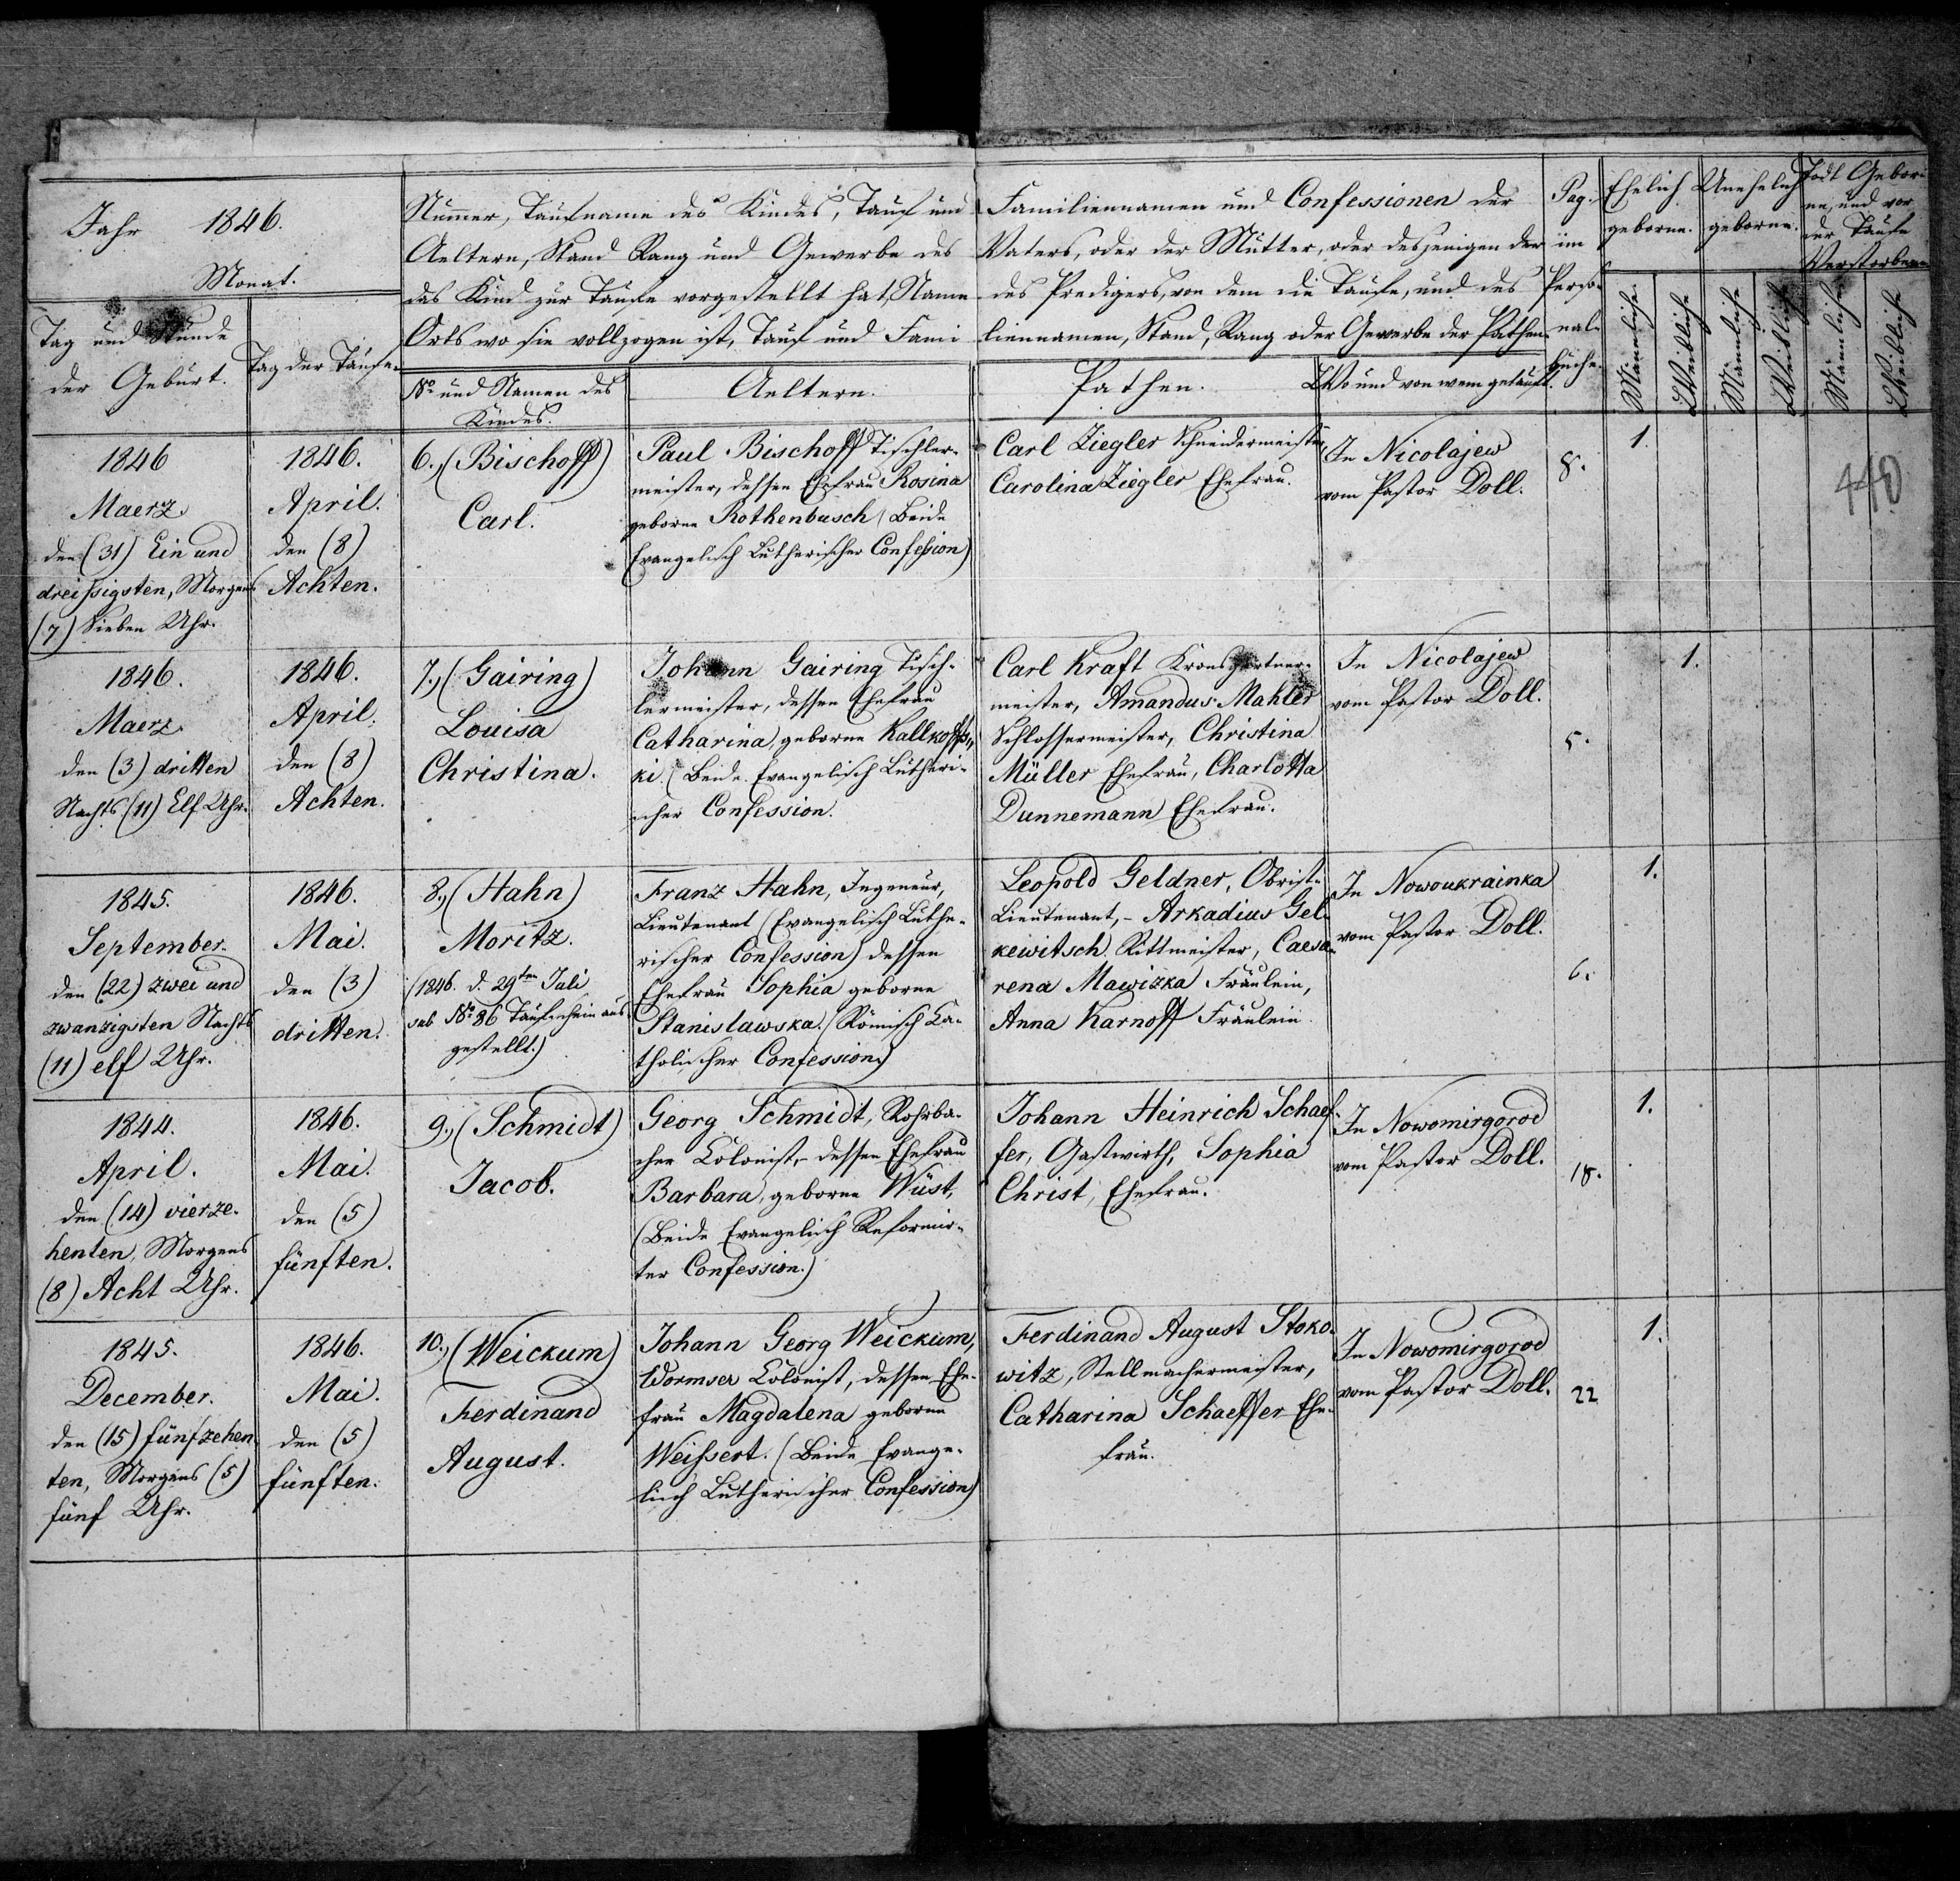 Jahr 1846.
Monat.
Tag und Stunde
der Geburt.
Tag der Taufe.
Nummer, Taufname des Kindes, Tauf und
Aeltern, Stand Rang und Gewerbe des
das Kind zur Taufe vorgestellt hat, Name
Orts wo sie vollzogen ist, Tauf und Fami
No und Namen des
Kindes.
Aeltern.
Familiennamen und Confessionen der
Vaters, oder der Mutter, oder desjenigen der
des Predigers, von dem die Taufe, und des
liennamen, Stand, Rang oder Gewerbe der Pathen
Pathen.
Wo und von wem getauft.
Pag.
im
Perso-
nal-
buche.
Ehelich
geborne.
Unehelich
geborne.
Todt Gebor-
ne, und vor
der Taufe
Verstorbene
Männliche
Weibliche
Männliche
Weibliche
Männliche
Weibliche
1846
Maerz
den (31) Ein und
dreissigsten, Morgens
(7) Sieben Uhr.
1846.
April.
den (8)
Achten.
6., (Bischoff)
Carl.
Paul Bischoff Tischler-
meister, dessen Ehefrau Rosina
geborne Rothenbusch (Beide
Evangelisch Lutherischer Confession)
Carl Ziegler Schneidermeister,
Carolina Ziegler Ehefrau.
In Nicolajew
vom Pastor Doll.
8.
1.
440
1846.
Maerz
den (3) dritten
Nachts (11) Elf Uhr.
1846.
April.
den (8)
Achten.
7., (Gairing)
Louisa
Christina.
Johann Gairing Tisch-
lermeister, dessen Ehefrau
Catharina, geborne Kallkoffs-
ki. (Beide Evangelisch Lutheri-
scher Confession.
Carl Kraft Kronsgärtner-
meister, Amandus Mahler
Schlossermeister, Christina
Müller Ehefrau, Charlotta
Dunnemann Ehefrau.
In Nicolajew
vom Pastor Doll.
5.
1.
1845.
September.
den (22) zwei und
zwanzigsten Nachts
(11) elf Uhr.
1846.
Mai.
den (3)
dritten.
8., (Hahn)
Moritz.
(1846. d. 29ten Juli
sub No 86 Taufschein aus
gestellt.)
Franz Hahn, Ingeneur,
Lieutenant (Evangelisch Luthe-
rischer Confession) dessen
Ehefrau Sophia geborne
Stanislawska. (Römisch Ka-
tholischer Confession)
Leopold Geldner, Obrist-
Lieutenant, - Arkadius Gel-
kewitsch Rittmeister, Caesa-
rena Mawizka Fräulein,
Anna Karnoff Fräulein.
In Nowoukrainka
vom Pastor Doll.
6.
1.
1844.
April.
den (14) vierze-
henten, Morgens
(8) Acht Uhr.
1846.
Mai.
den (5)
fünften.
9., (Schmidt)
Jacob.
Georg Schmidt, Rohrba-
cher Colonist, - dessen Ehefrau
Barbara, geborne Wüst,
(Beide Evangelisch Reformir-
ter Confession.)
Johann Heinrich Schaef-
fer, Gastwirth, Sophia
Christ, Ehefrau.
In Nowomirgorod
vom Pastor Doll.
18.
1.
1845.
December.
den (15) fünfzehen-
ten, Morgens (5)
fünf Uhr.
1846.
Mai.
den (5)
fünften.
10., (Weickum)
Ferdinand
August.
Johann Georg Weickum,
Wormser Colonist, dessen Ehe-
frau Magdalena geborne
Weissert. (Beide Evange-
lisch Lutherischer Confession)
Ferdinand August Stoko-
witz, Stellmachermeister,
Catharina Schaeffer Ehe-
frau.
In Nowomirgorod
vom Pastor Doll.
22
1.